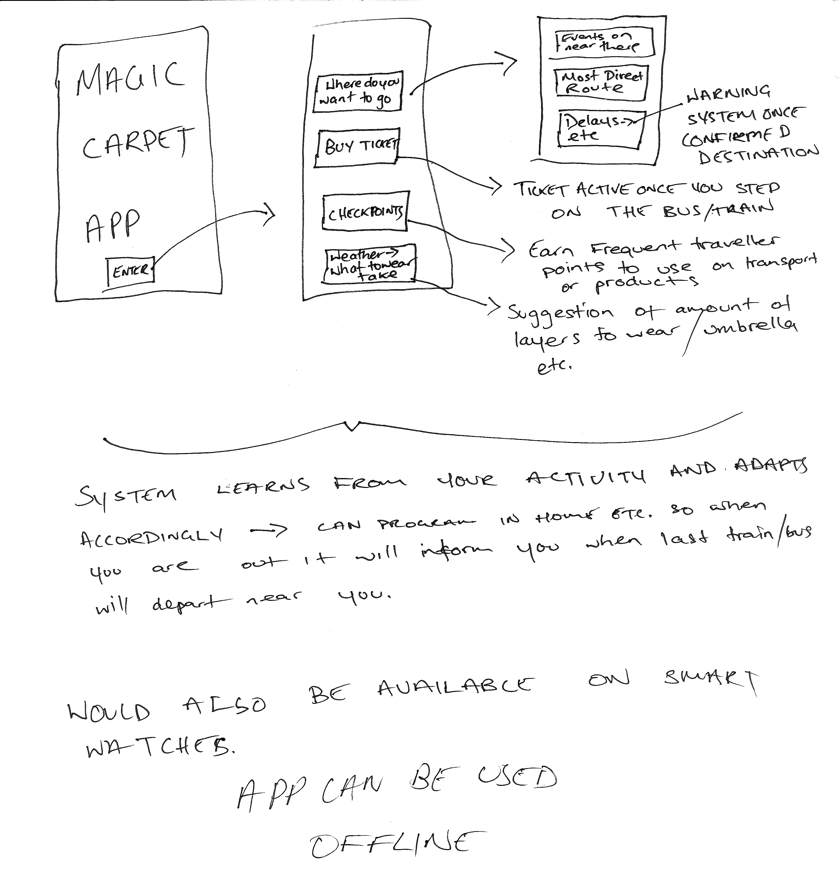 MAGIC
CARPET
APP
ENTER
Where do you
want to go
BUY TICKET
CHECKPOINTS
Weather →
What to wear
take
Events on
near there
Most Direct
Route
Delays →
etc
WARNING
SYSTEM ONCE
CONFIRMED
DESTINATION
TICKET ACTIVE ONCE YOU STEP
ON THE BUS/TRAIN
Earn Frequent traveller
points to use on transport
or products
Suggestion of amount of
layers to wear / umbrella
etc.
SYSTEM LEARNS FROM YOUR ACTIVITY AND ADAPTS
ACCORDINGLY → CAN PROGRAM IN HOME ETC. so when
you are out it will inform you when last train/bus
will depart near you.
WOULD ALSO BE AVAILABLE ON SMART
WATCHES.
APP CAN BE USED
OFFLINE